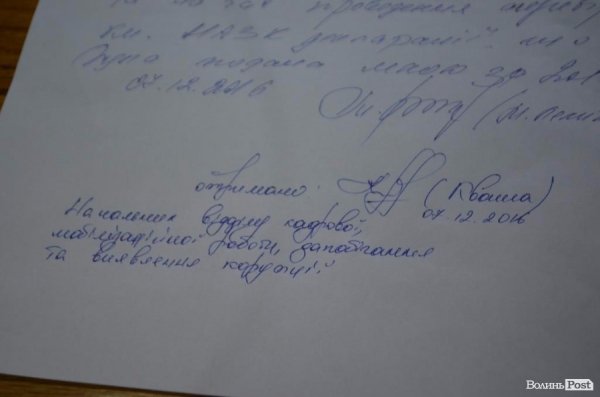 та по
проведення
НАЗК декларації, що
була подана мною за 201
07.12.2016
отримано (Кваша)
07.12.2016
Начальник відділу кадрової,
мобілізаційної роботи, запобігання
та виявлення корупції
ВолиньPost